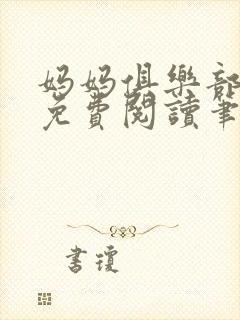 妈妈俱樂部
免費閱讀筆
書瓊